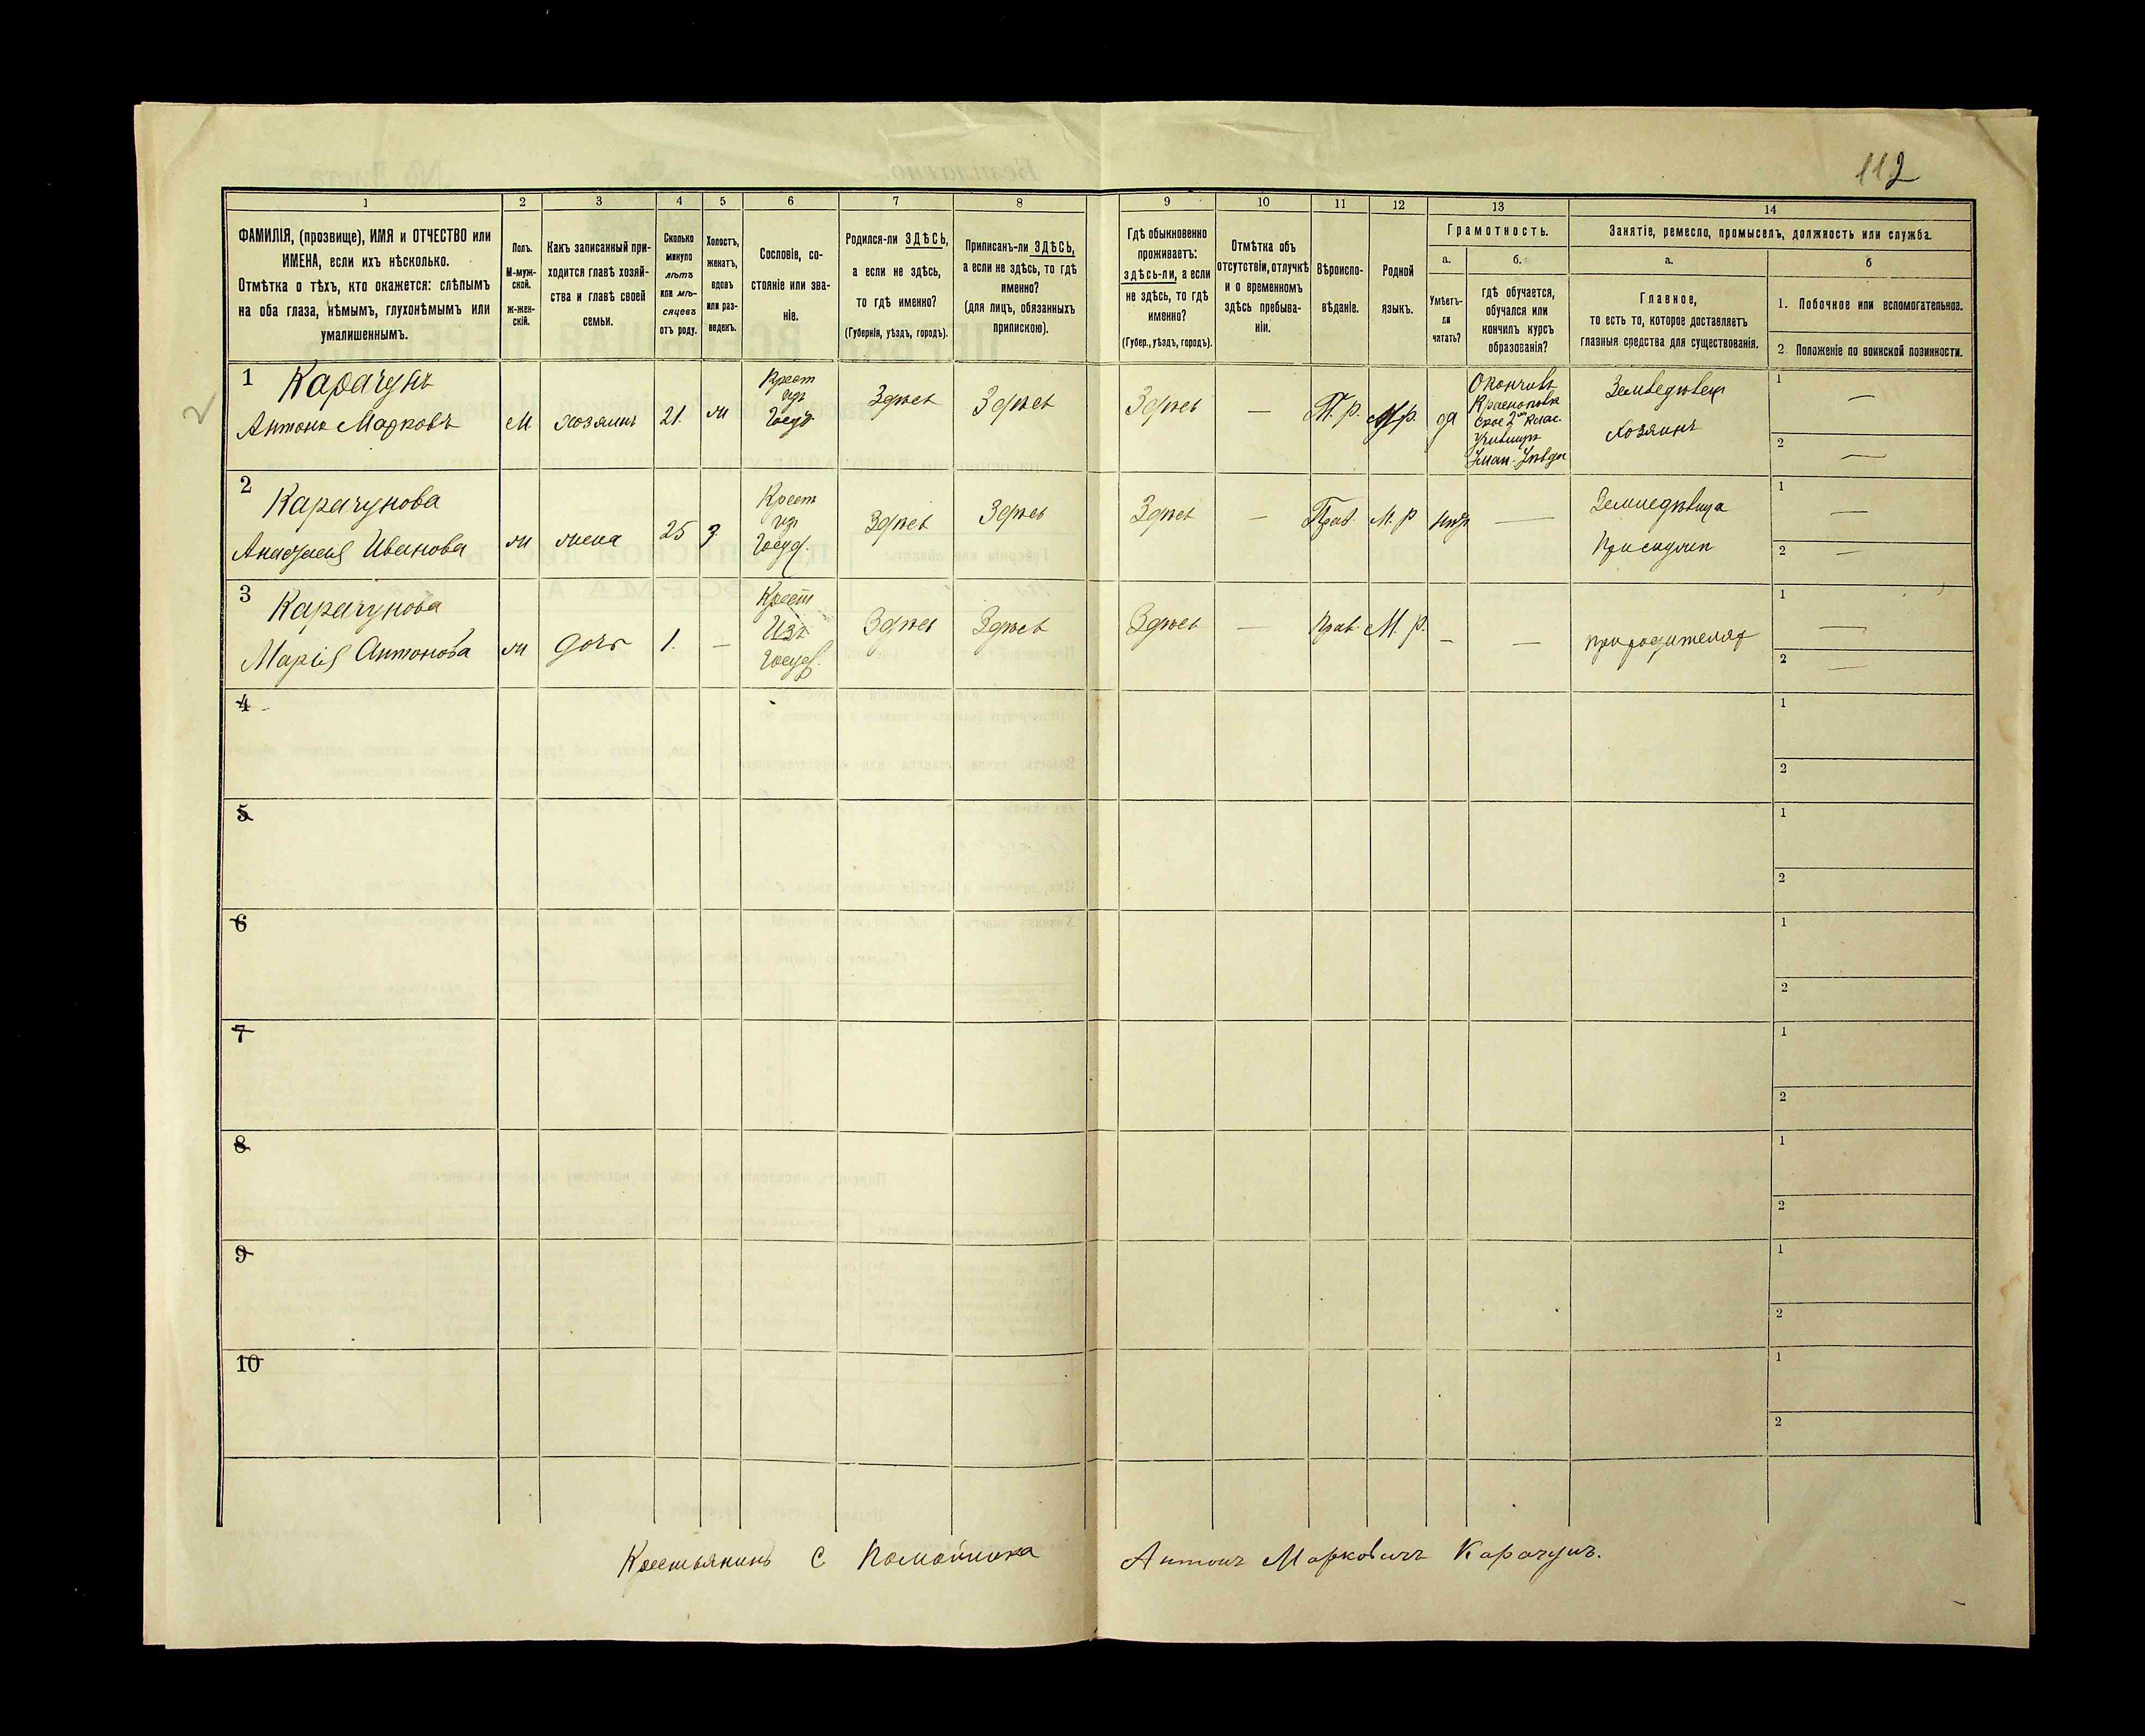 112
1 2 3 4 5 6 7 8 9 10 11 12 13 14
ФАМИЛІЯ, (прозвище), ИМЯ и ОТЧЕСТВО или
ИМЕНА, если ихъ нѣсколько.
Отмѣтка о тѣхъ, кто окажется: слѣпымъ
на оба глаза, нѣмымъ, глухонѣмымъ или
умалишеннымъ.
Полъ.
М-муж-
ской.
ж-жен-
скій.
Какъ записанный при-
ходится главѣ хозяй-
ства и главѣ своей
семьи.
Сколько
минуло
лѣтъ
или мѣ-
сяцевъ
отъ роду.
Холостъ,
женатъ,
вдовъ
или раз-
веденъ.
Сословіе, со-
стояніе или зва-
ніе.
Родился-ли ЗДѢСЬ,
а если не здѣсь,
то гдѣ именно?
(Губернія, уѣздъ, городъ).
Приписанъ-ли ЗДѢСЬ,
а если не здѣсь, то гдѣ
именно?
(для лицъ, обязанныхъ
припискою).
Гдѣ обыкновенно
проживаетъ:
здѣсь-ли, а если
не здѣсь, то гдѣ
именно?
(Губер., уѣздъ, городъ).
Отмѣтка объ
отсутствіи, отлучкѣ
и о временномъ
здѣсь пребыва-
ніи.
Вѣроиспо-
вѣданіе.
Родной
языкъ.
Грамотность.
а.
Умѣетъ-
ли
читать?
б.
гдѣ обучается,
обучался или
кончилъ курсъ
образованія?
Занятіе, ремесло, промыселъ, должность или служба.
а.
Главное,
то есть то, которое доставляетъ
главныя средства для существованія.
б
1. Побочное или вспомогательное.
2. Положеніе по воинской повинности.
2
1
Карачунъ
Антонъ Марковъ
М
хозяинъ
21.
ж
Крест
изъ
Госуд.
Здѣсь
Здѣсь
Здѣсь
—
П. р.
М. р.
да
Окончивъ
2 клас.
Земледѣлецъ
Хозяинъ
1 —
2 —
2
Карачунова
Анастасія Иванова
ж
жена
25
З
Крест
изъ
Госуд.
Здѣсь
Здѣсь
Здѣсь
—
Прав.
М. р
нѣтъ
—
Земледѣлица
При мужѣ
1 —
2 —
3
Карачунова
Марія Антонова
ж
дочь
1.
—
Крест
Изъ
Госуд.
Здѣсь
Здѣсь
Здѣсь
—
Прав.
М. р.
—
—
при родителяхъ
1 —
2 —
4
1
2
5
1
2
6
1
2
7
1
2
8
1
2
9
1
2
10
1
2
Крестьянинъ С Помойника Антонъ Марковичъ Карачунъ.